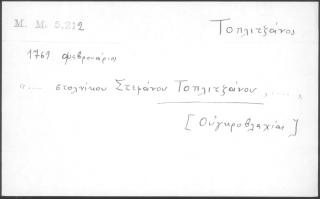 Μ. Μ. 5,212
Τοπλιτζάνος
1761 φεβρουάριος
".... στολνίκου Στεμάνου Τοπλιτζάνου, ....,
[Ούγκροβλαχίας]